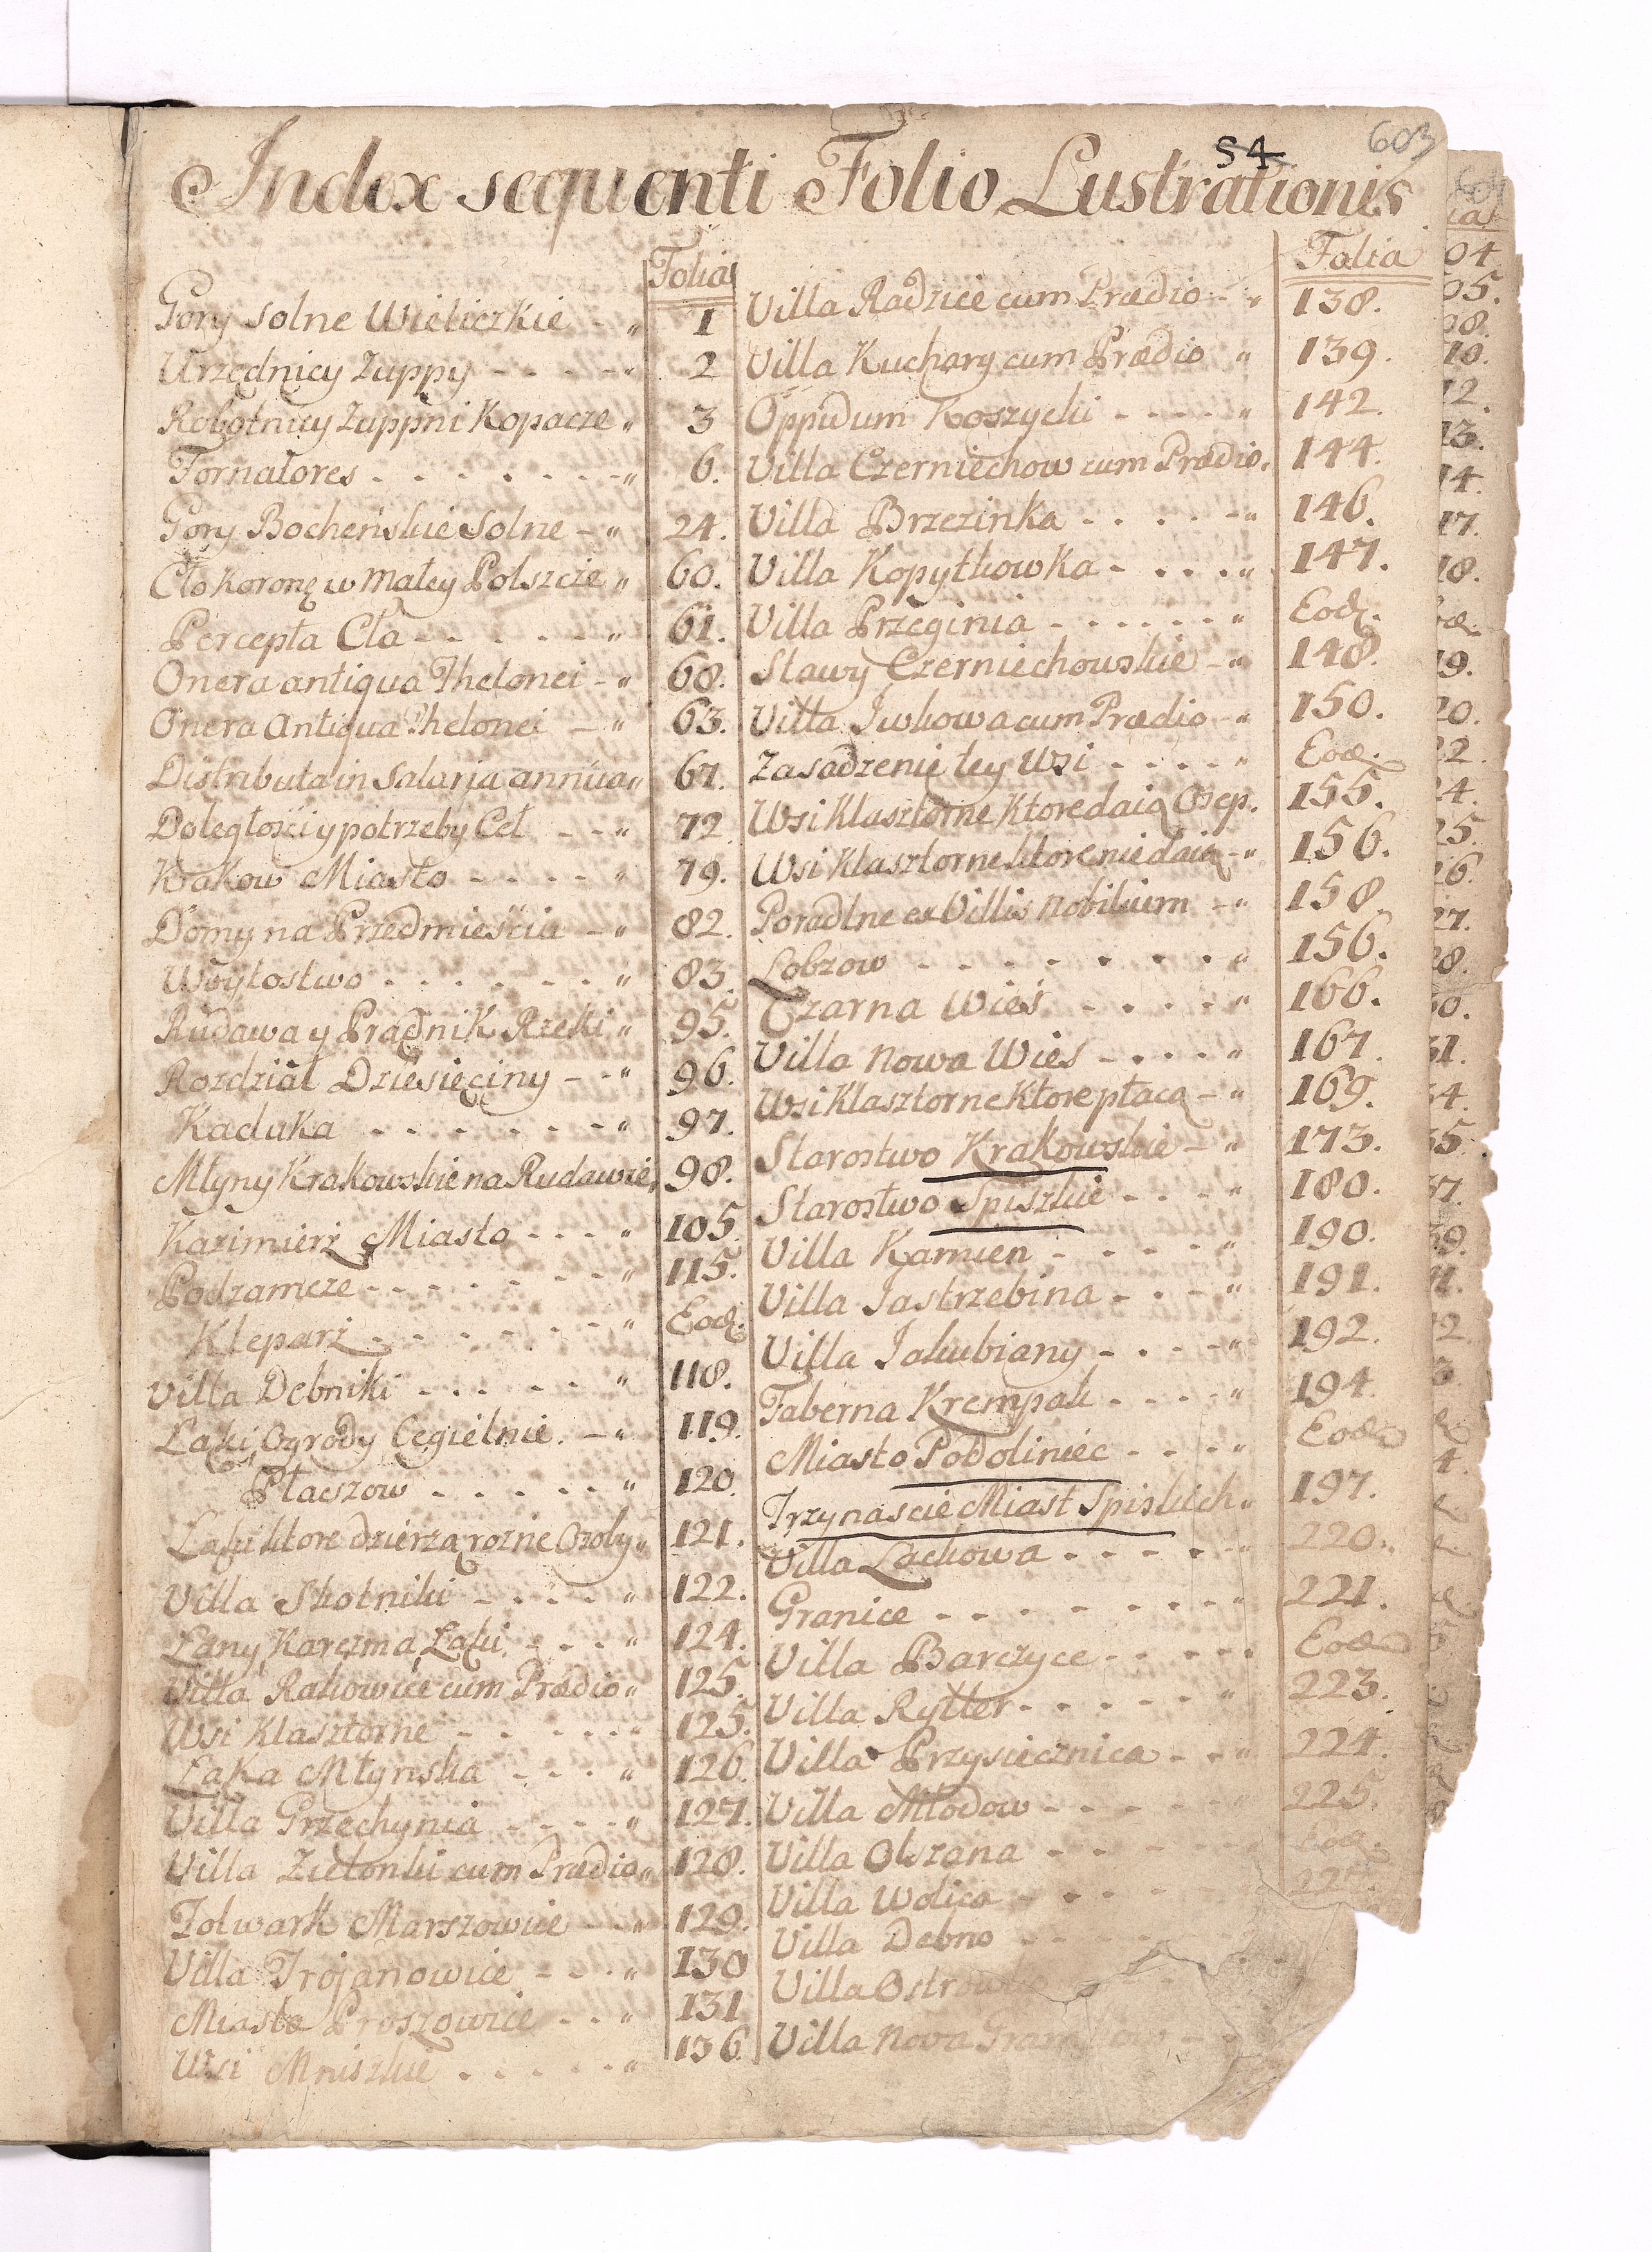 603
54
Index sequenti Folio Lustrationis
Folia
Gory solne Wieliczkie - " 1
Urzędnicy Zuppy - - - - " 2
Robotnicy Zuppni Kopacze " 3
Tornatores - - - - - - - " 6.
Gory Bocheńskie Solne - " 24.
Cło Koronę w małey Polszcze " 60.
Percepta Cła - - - - - - " 61.
Onera antiqua Thelonei - " 68.
Onera Antiqua Thelonei - " 63.
Distributa in Salaria annua " 67.
Doległości y potrzeby Ceł - - " 72
Krakow Miasto - - - - " 79.
Domy na Przedmieściu - " 82.
Woytostwo - - - - - - " 83.
Rudawa y Prądnik Rzeki " 95.
Rozdział Dziesięciny - - " 96.
Kaduka - - - - - - - " 97.
Młyny Krakowskie na Rudawie " 98.
Kazimierz Miasto - - - - " 105
Podzamcze - - - - - - - " 115.
Kleparz - - - - - - - " Eod.
Villa Debniki - - - - - - " 118.
Łąki, Ogrody Cegielnie. - " 119.
Płaszow - - - - - - " 120.
Łąki ktore dzierzą rozne Ozoby " 121.
Villa Skotniki - - - - - " 122.
Łany Karczma Łąki - - - " 124.
Villa Rakowice cum Prædio " 125.
Wsi Klasztorne - - - - - - " 125.
Łąka Młynska - - - - " 126.
Villa Grzechynia - - - - " 127.
Villa Zielonki cum Prædio " 128.
Folwark Marszowice - - " 129.
Villa Trojanowice - - - " 130
Miasto Proszowice - - " 131
Wsi Mniszkie - - - - - " 136
Folia
Villa Radzice cum Prædio - " 138.
Villa Kuchary cum Prædio " 139.
Oppidum Koszycki - - - - " 142.
Villa Czerniechow cum Prædio. 144.
Villa Brzezinka - - - - - " 146.
Villa Kopytkowka - - - - " 147.
Villa Przeginia - - - - - - " Eod.
Stawy Czerniechowskie - " 148.
Villa Iwkowa cum Prædio - " 150.
Zasadzenie tey Wsi - - - - " Eod.
Wsi Klasztorne Ktore daią Osep. 155.
Wsi Klasztorne ktore nie daią - " 156.
Poradlne ex Villis nobilium - " 158
Lobzow - - - - - - - - " 156.
Czarna Wieś - - - - - " 166.
Villa nowa Wies - - - - " 167.
Wsi Klasztorne Ktore płacą - " 169.
Starostwo Krakowskie - " 173.
Starostwo Spiszkie - - - - " 180.
Villa Kamien - - - - - " 190.
Villa Jastrzebina - - - - " 191.
Villa Jakubiany - - - - " 192.
Taberna Krempak - - - - " 194.
Miasto Podoliniec - - - - " Eod
Trzynascie Miast Spiskich " 197.
Villa Lackowa - - - - - " 220.
Granice - - - - - - - - " 221.
Villa Barczyce - - - - - Eod
Villa Rytter - - - - - - " 223.
Villa Przysiecznica - - " 224.
Villa Młodow - - - - - - " 225.
Villa Olszana - - - - - Eod.
Villa Wolica - - - - -
Villa Debno - - - - - -
Villa
Villa Nova